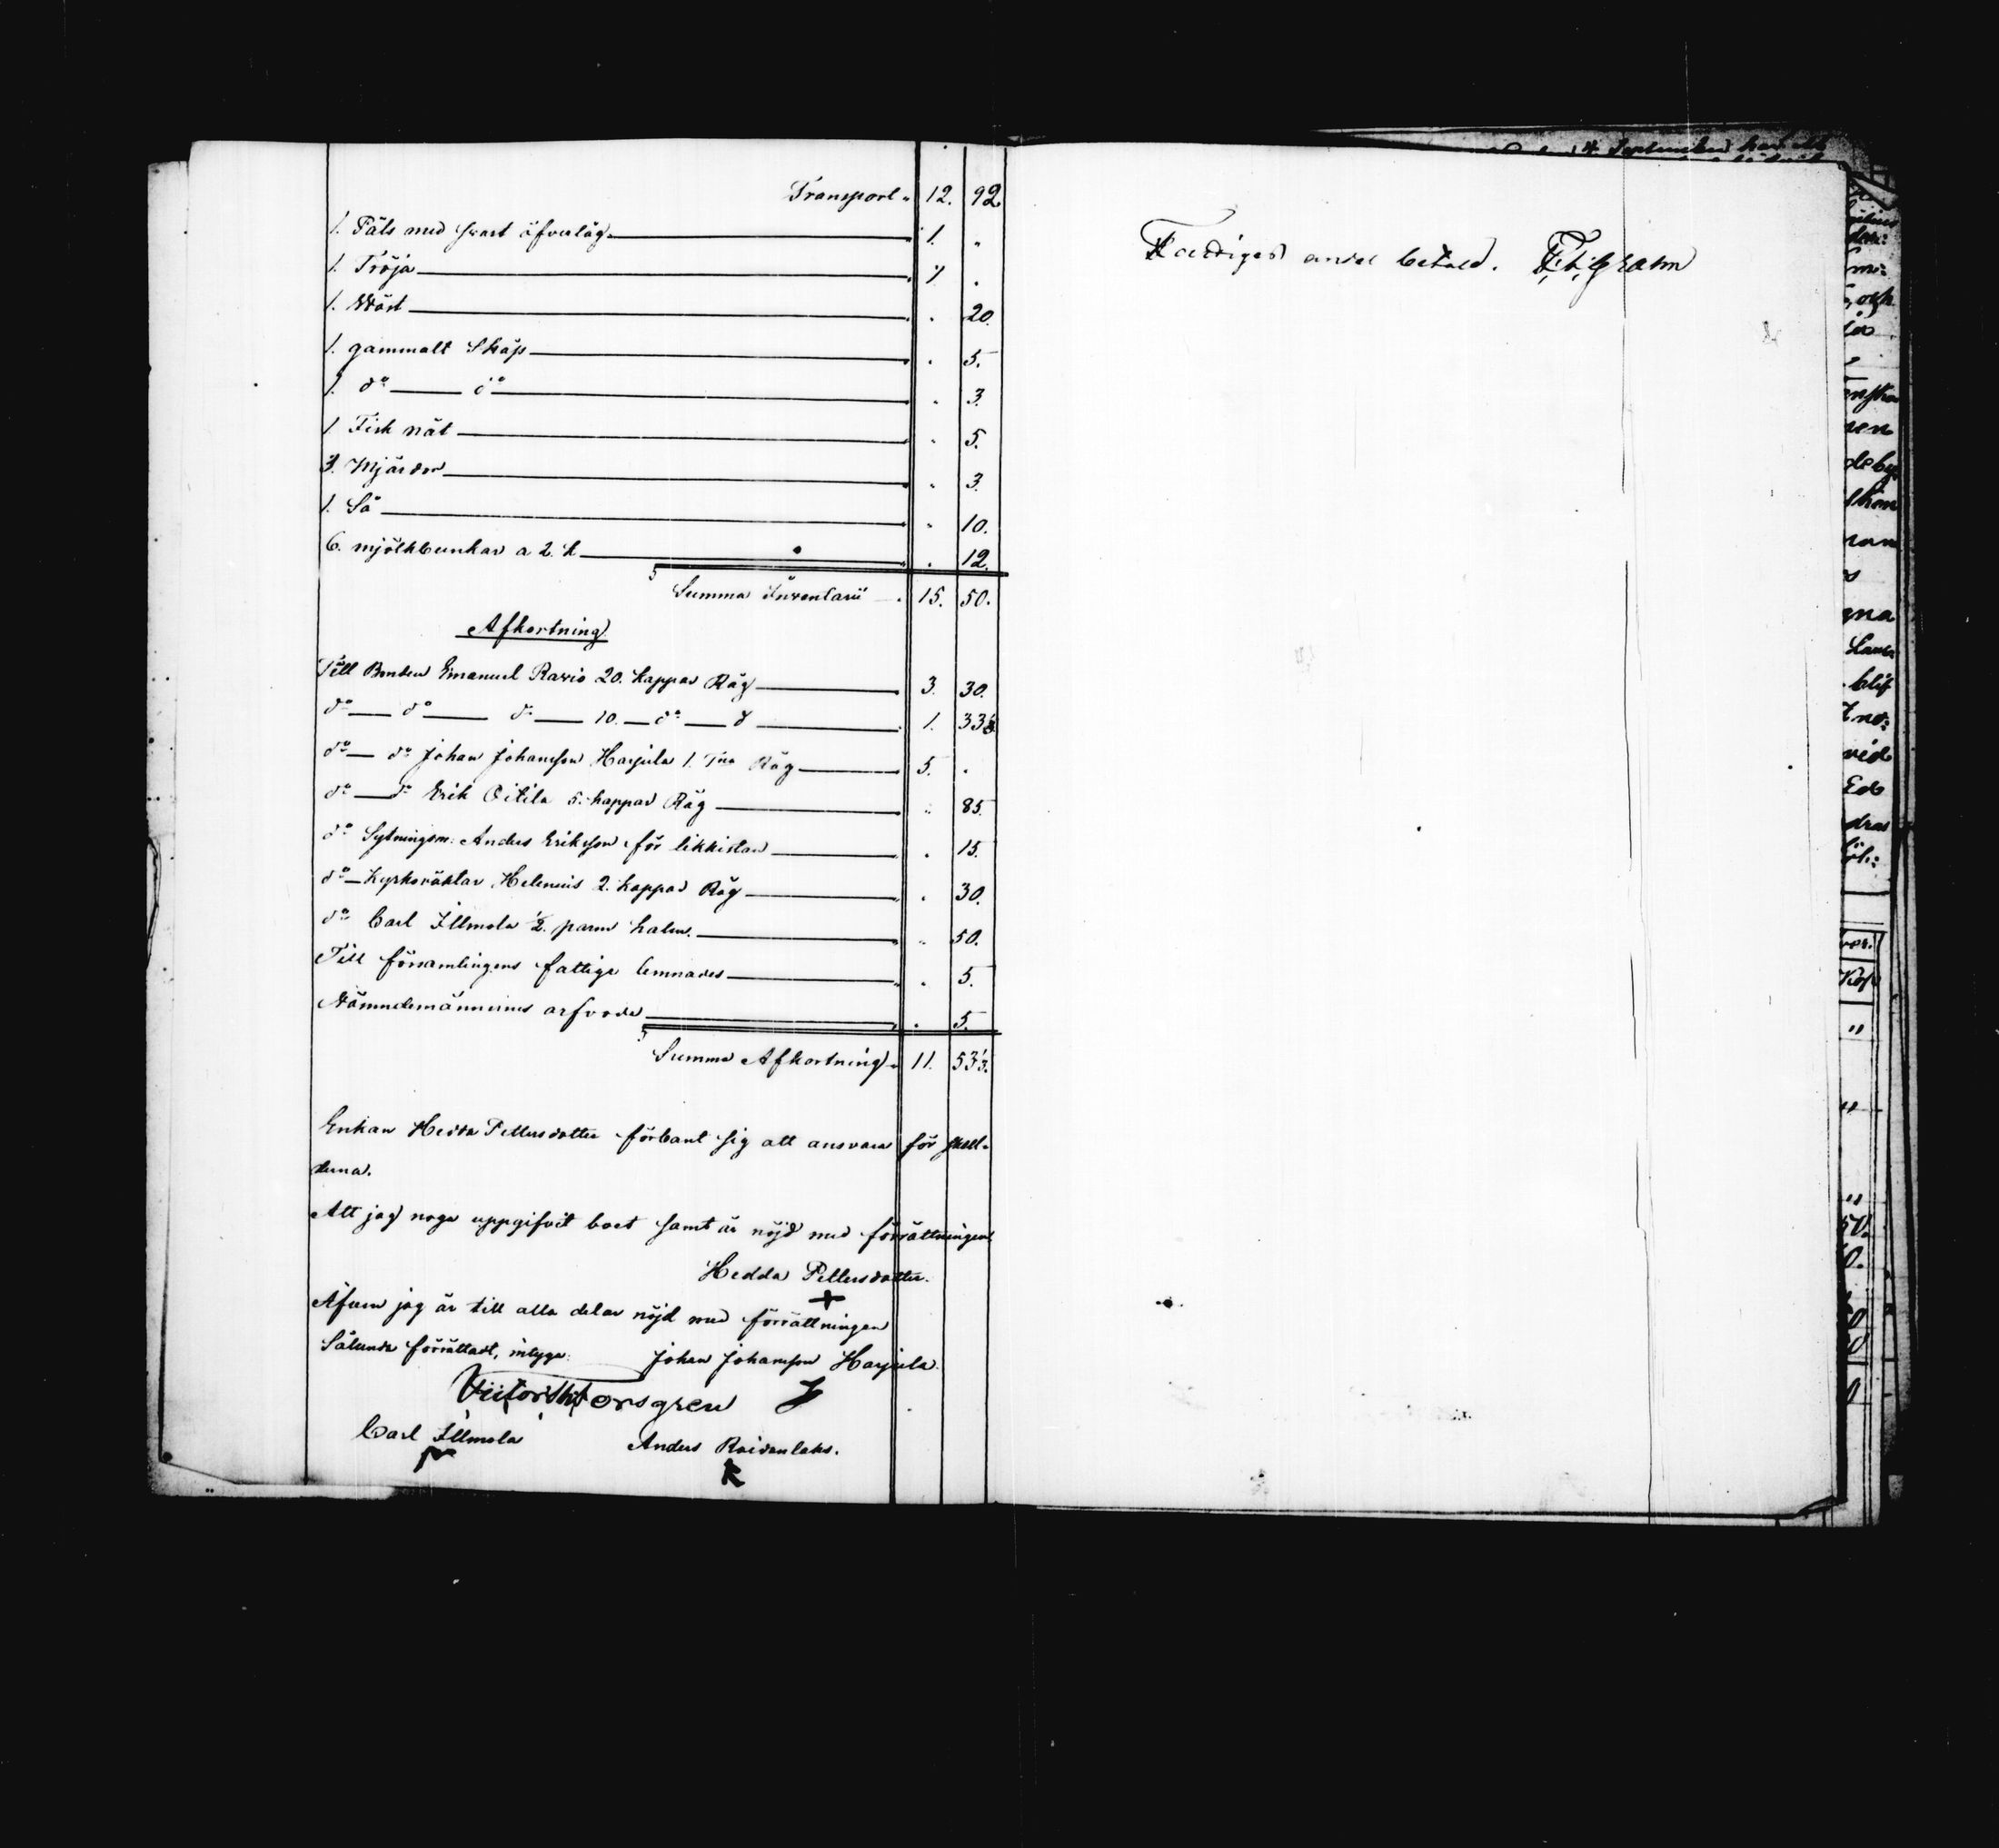 Transport „ 12. 92
1. Päls med svart öfverläg „ 1. „
1. Tröja „ 1. „
1. Wäst „ 20.
1. gammalt Skåp „ 5.
1. do do „ 3.
1 Fisk nät „ 5.
3. Mjärdor „ 3.
1. Så „ 10.
6. mjölkbunkar a 2. k „ 12.
Summa Inventarii 15. 50.
Afkortning
Till Bonden Emanuel Ravio 20. kappar Råg 3. 30.
do do do 10. do d 1. 33⅓
do do Johan Johansson Harjula 1. Tna Råg 5. „
do do Erik Oitila 5. kappar Råg „ 85.
do Sytningsm: Anders Eriksson för likkistan „ 15.
do Kyrkovaktar Helenius 2. kappar Råg „ 30.
do Carl Illmola ½ parm halm. „ 50.
Till församlingens fattiga lemnades „ 5.
Nämndemännernes arfvode „ 5.
Summa Afkortning 11. 53⅓.
Enkan Hedda Pettersdotter förbant sig att ansvara för skul-
derna.
Att jag noga uppgifvit boet samt är nöjd med förrättningen
Hedda Pettersdotter.
Äfven jag är till alla delar nöjd med förrättningen
Sålunda förrättadt, intyga: Johan Johansson Harjula.
Forsgren
Carl Illmola Anders Roidanlaks.
Fattiges andel betald.